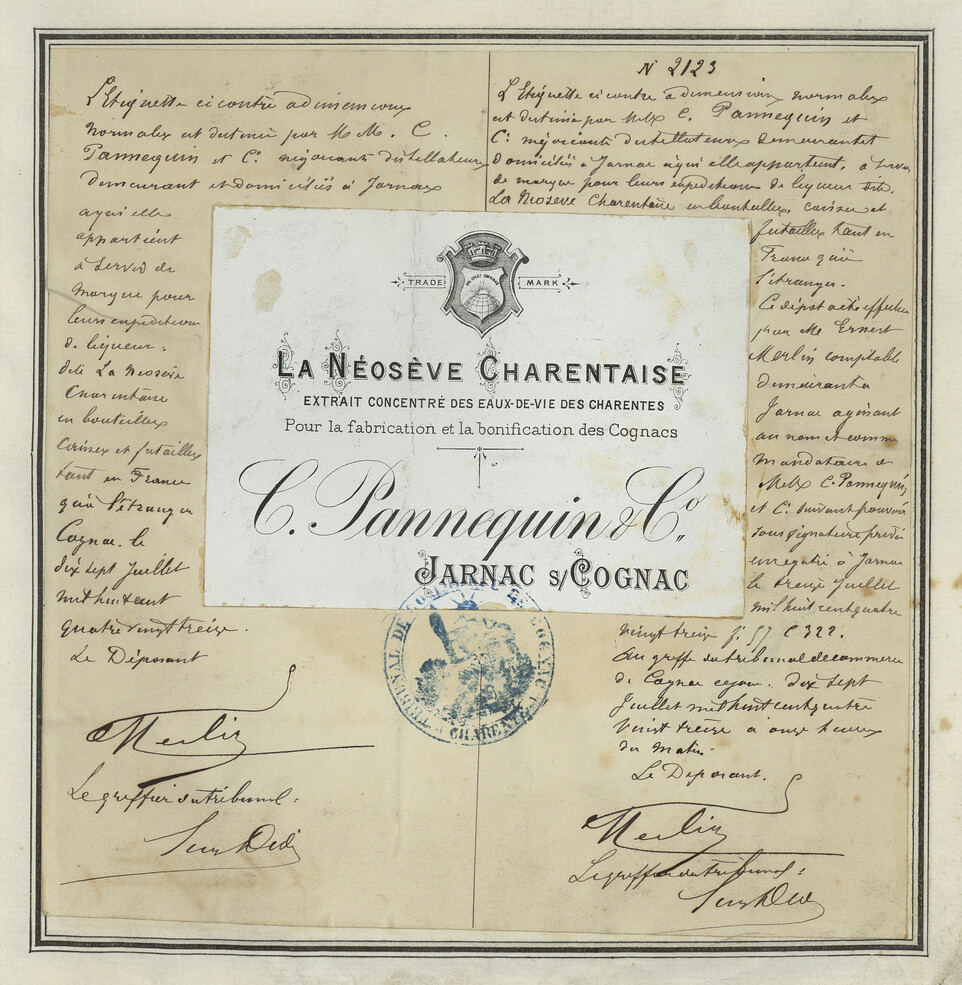 L'Etiquette ci contre a dimensions
normales est destinée par M M. C.
Pannequin et Cie négociants distillateurs
demeurant et domiciliés à Jarnac
a qui elle
appartient
à servir de
marque pour
leurs expéditions
de liqueur
dite La Néosève
Charentaise
en bouteilles
caisses et futailles
tant en France
qu'à l'étranger
Cognac. le
dix sept Juillet
mil huit cent
quatre vingt treize.
Le Déposant
Merlin
Le greffier du tribunal:
N 2123
L'Etiquette ci contre a dimensions normales
est destinée par MM C. Pannequin et
Cie négociants distillateurs demeurant et
domiciliés à Jarnac à qui elle appartient, à servir
de marque pour leurs expéditions de liqueur dite.
La Néosève Charentaise en bouteilles, caisses et
futailles tant en
France qu'à
l'étranger.
Ce dépôt a été effectué
par Mr Ernest
Merlin comptable
demeurant à
Jarnac agissant
au nom et comme
mandataire de
MM C. Pannequin
et Cie suivant pouvoir
sous signature privée
enregistré à Jarnac
le treize Juillet
mil huit cent quatre
vingt treize fo 57 C 322.
Au greffe du tribunal de commerce
de Cognac ce jour. dix sept
Juillet mil huit cent quatre
vingt treize à onze heures
du matin.
Le Déposant.
Merlin
Le greffier du tribunal:
TRADE MARK
LA NÉOSÈVE CHARENTAISE
EXTRAIT CONCENTRÉ DES EAUX-DE-VIE DES CHARENTES
Pour la fabrication et la bonification des Cognacs
C. Pannequin & Co
JARNAC S/COGNAC
TRIBUNAL DE COMMERCE DE COGNAC
CHARENTE